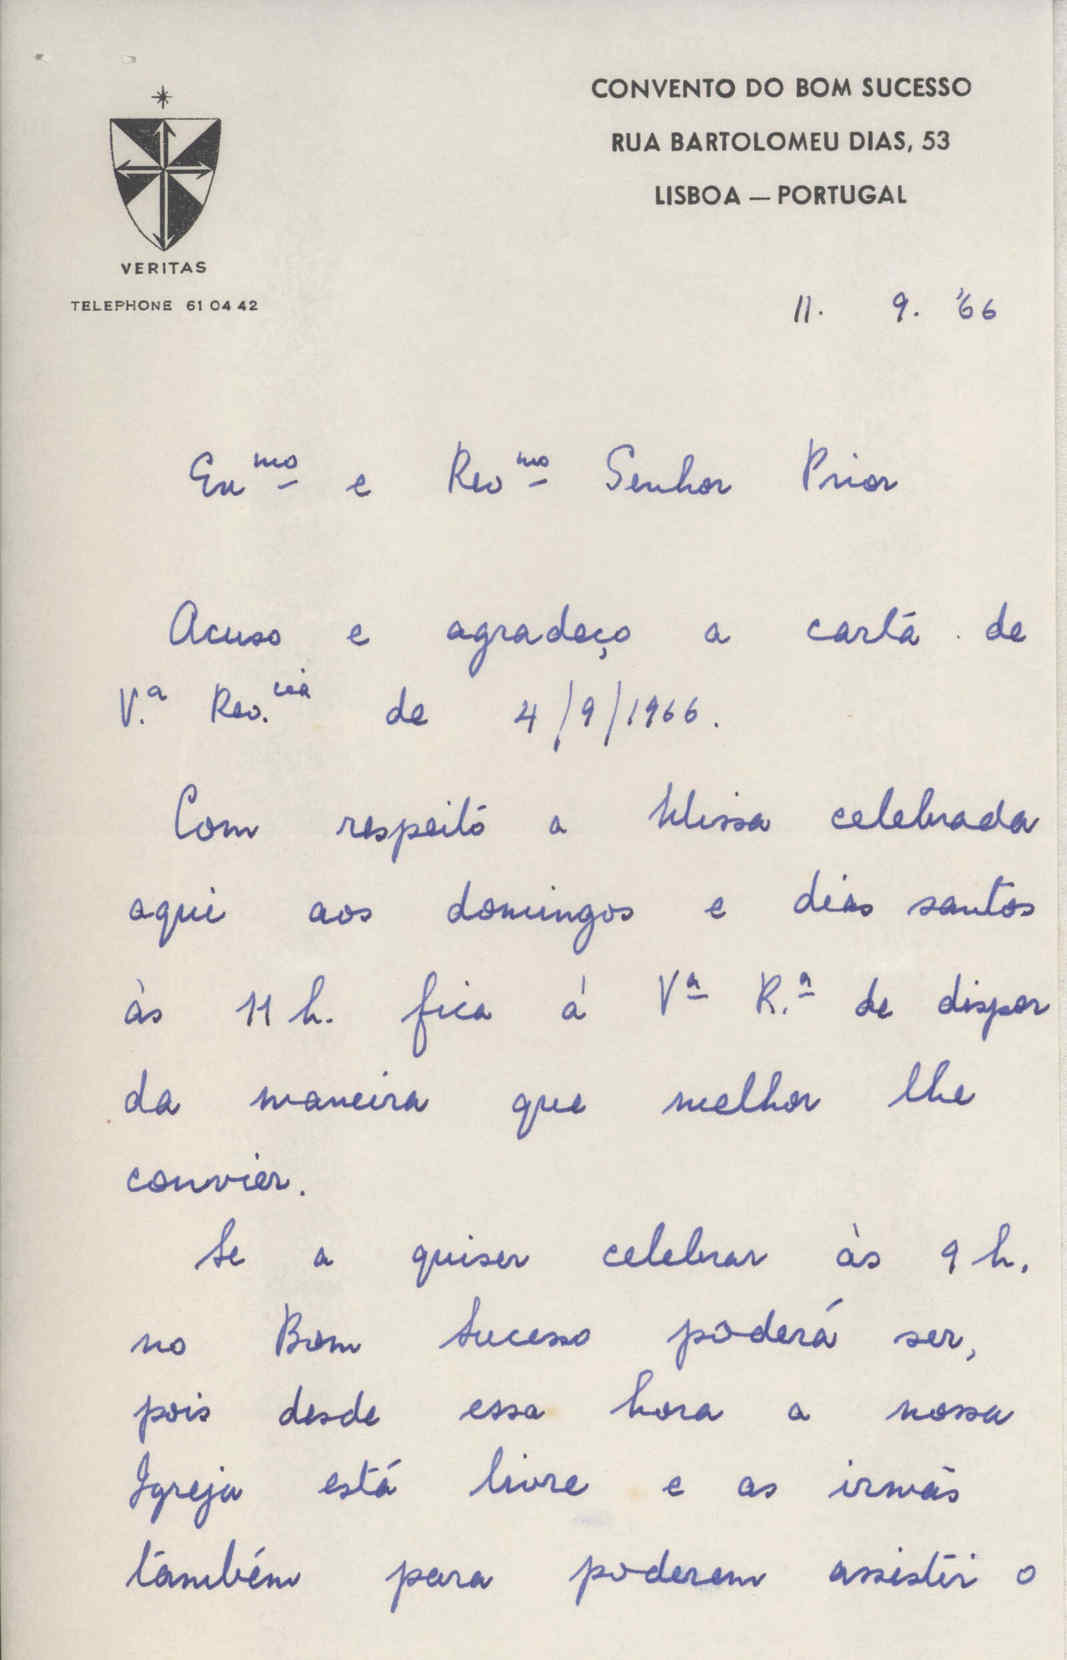 CONVENTO DO BOM SUCESSO
RUA BARTOLOMEU DIAS, 53
LISBOA — PORTUGAL
VERITAS
TELEPHONE 61 04 42
11. 9. '66
Exmo e Revmo Senhor Prior
Acuso e agradeço a carta de
V.a Rev.cia de 4/9/1966.
Com respeito a Missa celebrada
aqui aos domingos e dias santos
às 11 h. fica á Va R.a de dispor
da maneira que melhor lhe
convier.
Se a quiser celebrar às 9 h.
no Bom Sucesso poderá ser,
pois desde essa hora a nossa
Igreja está livre e as irmãs
também para poderem assistir o